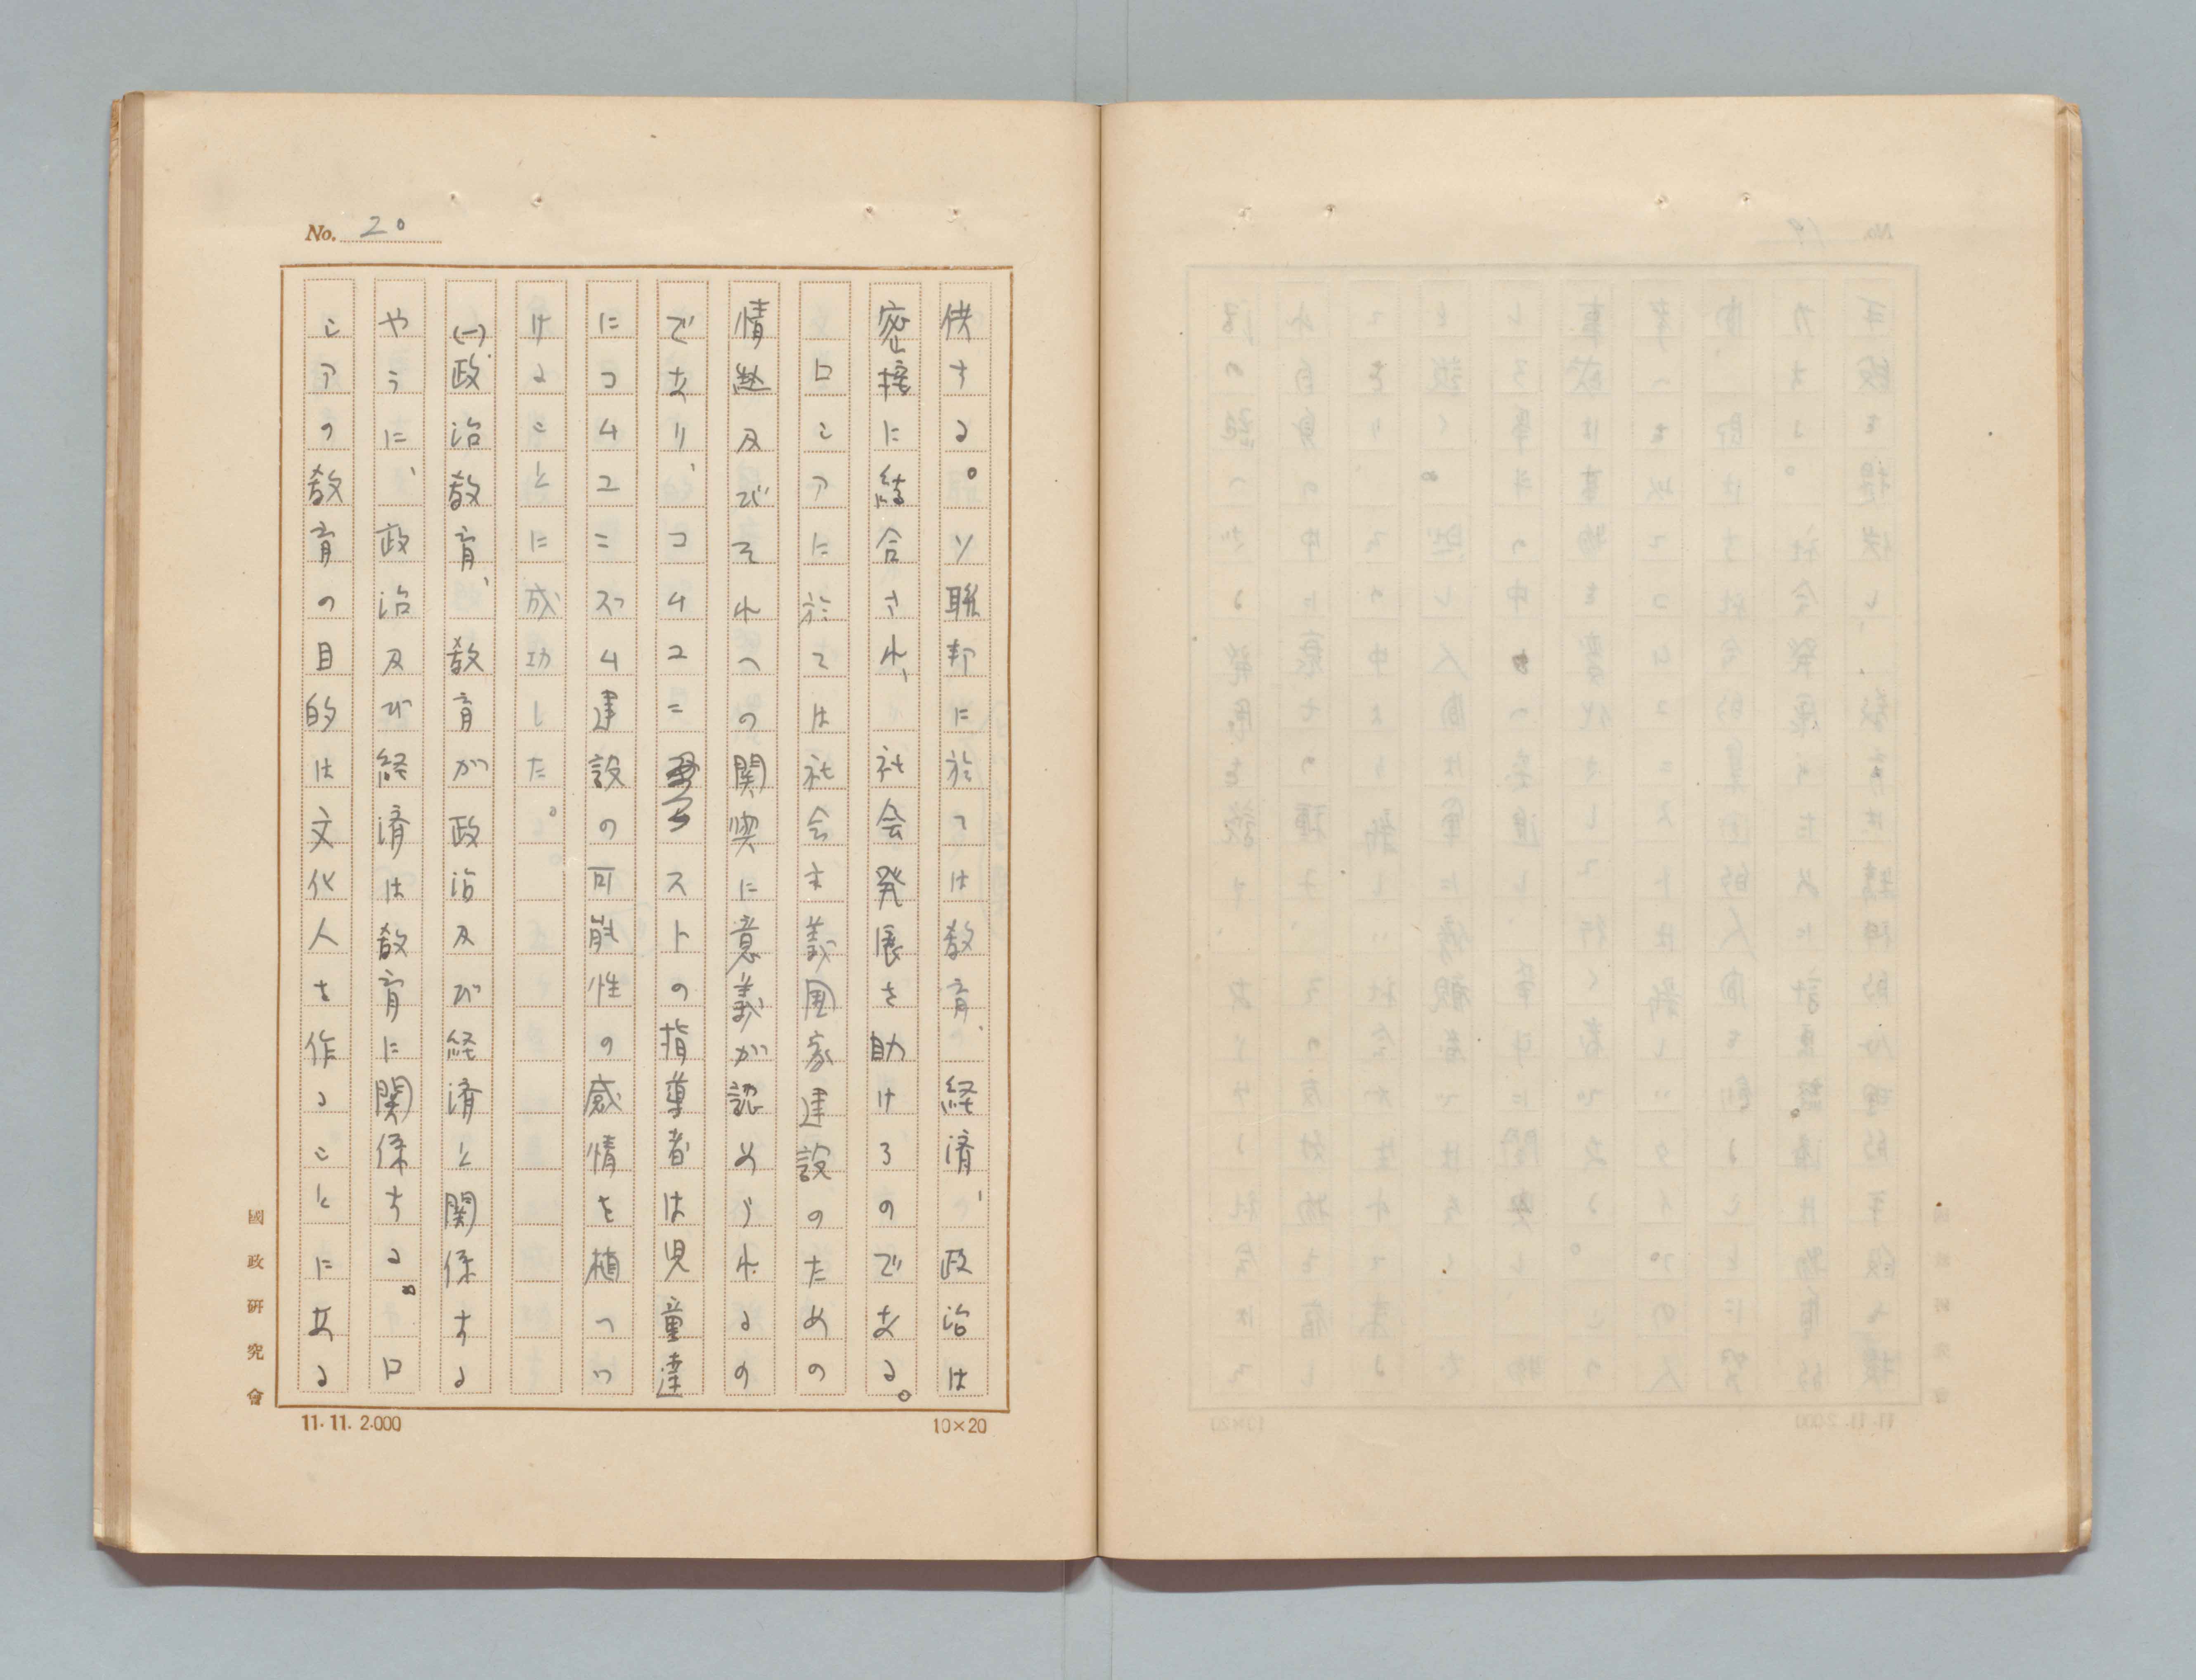 No. 20
供する。ソ聯邦に於ては教育、経済、政治は
密接に結合され、社会発展を助けるのである。
ロシアに於ては社会主義国家建設のための
情熱及びそれへの関に意義が認められるの
であり、コムユニストの指導者は児童達
にコムユニズム建設の可能性の感情を植へつ
けることに成功した。
(一)政治教育、教育が政治及び経済と関係する
やうに、政治及び経済は教育に関係する。ロ
シアの教育の目的は文化人を作ることにある
國政研究會
11. 11. 2.000
10×20